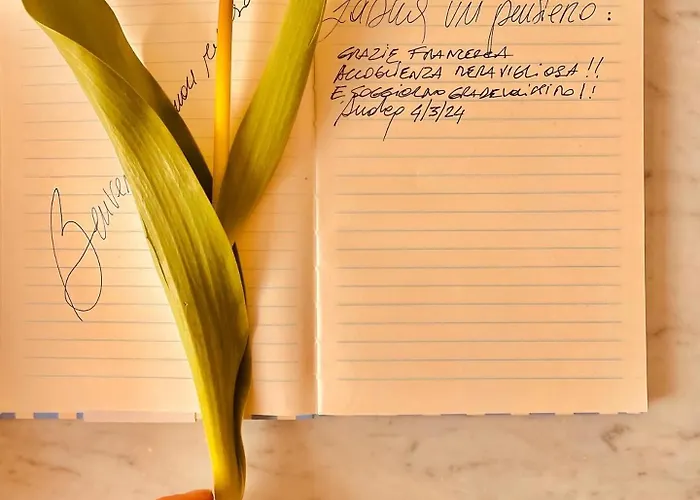 Benven
Lascia un pensiero:
GRAZIE FRANCESCA
ACCOGLIENZA MERAVIGLIOSA!!
E SOGGIORNO GRADEVOLISSIMO!!
4/3/24